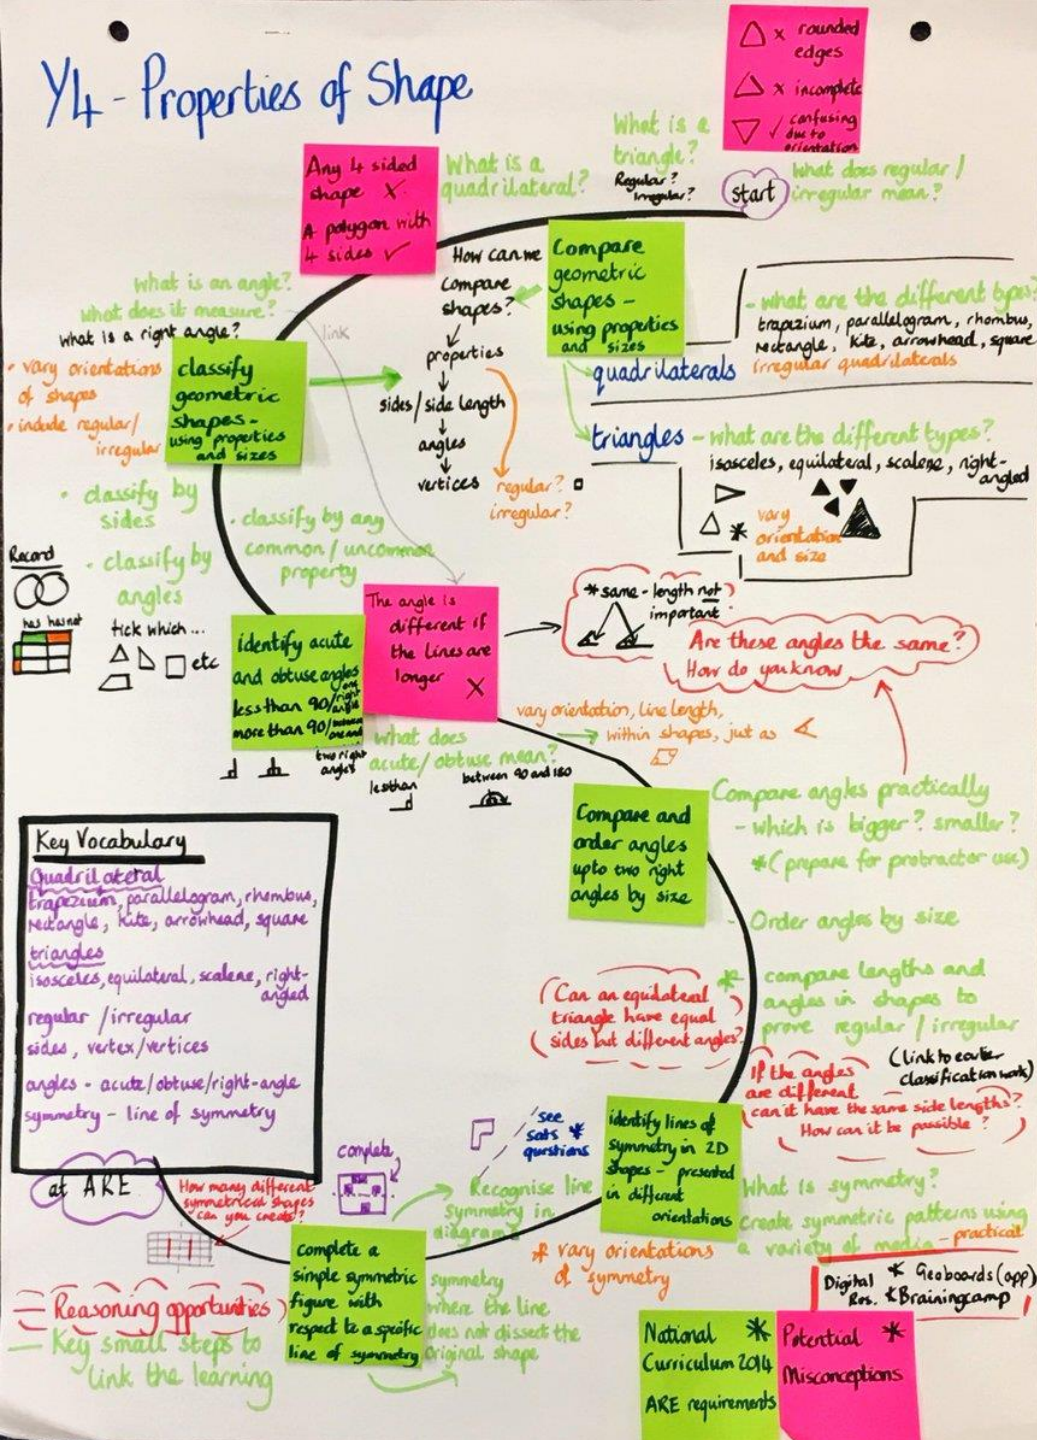 Y4 - Properties of Shape
x rounded
edges
x incomplete
✓ confusing
due to
orientation
What is a
triangle?
Regular?
Irregular?
start
What does regular/
irregular mean?
Any 4 sided
shape X
A polygon with
4 sides ✓
What is a
quadrilateral?
How can we
compare
shapes?
properties
sides/side length
angles
vertices
regular?
irregular?
Compare
geometric
shapes -
using properties
and sizes
quadrilaterals
- what are the different types?
trapezium, parallelogram, rhombus,
rectangle, kite, arrowhead, square
irregular quadrilaterals
triangles - what are the different types?
isosceles, equilateral, scalene, right-
angled
* vary
orientation
and size
What is an angle?
what does it measure?
What is a right angle?
link
• vary orientations
of shapes
• include regular/
irregular
classify
geometric
shapes-
using properties
and sizes
• classify by
sides
• classify by
angles
• classify by any
common/uncommon
property
Record
has has not
tick which...
etc
identify acute
and obtuse angles
less than 90/one right angle
more than 90/between one and
two right
angles
The angle is
different if
the lines are
longer
X
* same - length not
important
Are these angles the same?
How do you know
vary orientation, line length,
within shapes, just as
what does
acute/obtuse mean?
less than
between 90 and 180
Compare and
order angles
upto two right
angles by size
Compare angles practically
- which is bigger? smaller?
* (prepare for protractor use)
- Order angles by size
* compare lengths and
angles in shapes to
prove regular/irregular
(link to earlier
classification work)
Can an equilateral
triangle have equal
sides but different angles?
If the angles
are different
can it have the same side lengths?
How can it be possible?
Key Vocabulary
Quadrilateral
trapezium, parallelogram, rhombus,
rectangle, kite, arrowhead, square
triangles
isosceles, equilateral, scalene, right-
angled
regular/irregular
sides, vertex/vertices
angles - acute/obtuse/right-angle
symmetry - line of symmetry
at ARE
identify lines of
symmetry in 2D
shapes - presented
in different
orientations
see
sats *
questions
What is symmetry?
Create symmetric patterns using
a variety of media - practical
Recognise line
symmetry in
diagrams
* vary orientations
of symmetry
complete
How many different
symmetrical shapes
can you create?
complete a
simple symmetric
figure with
respect to a specific
line of symmetry
symmetry
where the line
does not dissect the
original shape
Reasoning opportunities
Key small steps to
link the learning
Digital
Res.
* Geoboards (app)
* Brainingcamp
National *
Curriculum 2014
ARE requirements
Potential *
Misconceptions